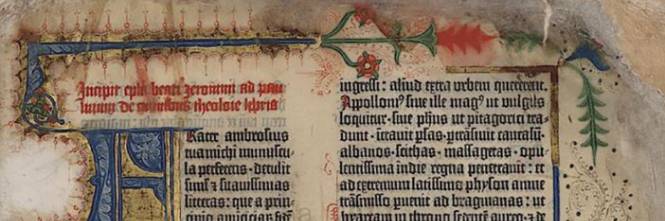 Incipit epła beati Jeronimi ad pau
linum de omnibus theologie
Frater ambrosius
tua michi munuscu
la perferens · detulit
simł ⁊ suauissimas
litteras: que a prin
cipio
ingressi: aliud extra urbem quererent.
Appolloni⁹ siue ille mag⁹ ut vulgus
loquitur · siue ph̄us ut pitagorici tra
dunt · ītrauit p̄sas · p̄trāsiuit caucasū
albanos · scithas · massagetas · opu
lentissima indie regna penetrauit: et
ad extremum latissimo physon amne
trāsmisso puenit ad bragmanas: ut
hyarcam in throno sedente aureo